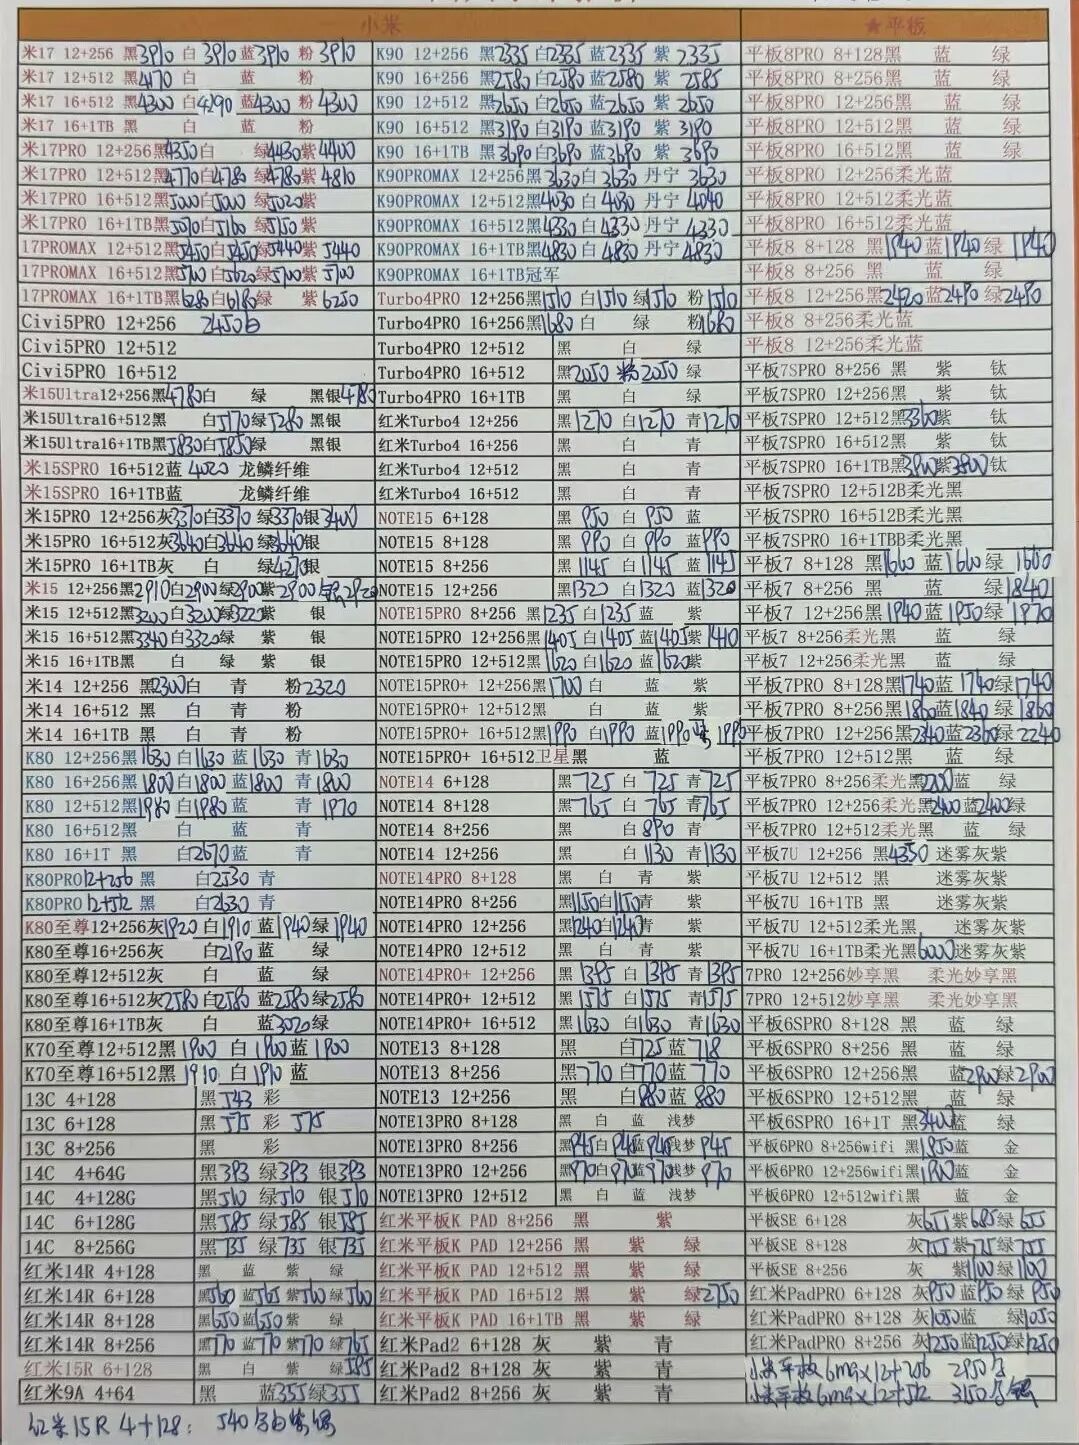 小米
米17 12+256 黑3910 白3910 蓝3910 粉3910
米17 12+512 黑4170 白 蓝 粉
米17 16+512 黑4300 白4290 蓝4300 粉4300
米17 16+1TB 黑 白 蓝 粉
米17PRO 12+256黑4350白 绿4430紫4400
米17PRO 12+512黑4770白4780绿4780紫4810
米17PRO 16+512黑5000白5000绿5020紫
米17PRO 16+1TB黑5070白5160绿5150紫
17PROMAX 12+512黑5450白5450绿5440紫5440
17PROMAX 16+512黑5700白5620绿5700紫5700
17PROMAX 16+1TB黑6280白6180绿 紫6250
Civi5PRO 12+256 2450白
Civi5PRO 12+512
Civi5PRO 16+512
米15Ultra12+256黑4780白 绿 黑银4780
米15Ultra16+512黑 白5170绿5280黑银
米15Ultra16+1TB黑5830白5850绿 黑银
米15SPRO 16+512蓝 4020 龙鳞纤维
米15SPRO 16+1TB蓝 龙鳞纤维
米15PRO 12+256灰3370白3370绿3370银3400
米15PRO 16+512灰3640白3640绿3640银
米15PRO 16+1TB灰 白 绿4270银
米15 12+256黑2910白2900绿2900紫2900银2920
米15 12+512黑3200白3200绿3220紫 银
米15 16+512黑3340白3320绿 紫 银
米15 16+1TB黑 白 绿 紫 银
米14 12+256 黑2300白 青 粉2320
米14 16+512 黑 白 青 粉
米14 16+1TB 黑 白 青 粉
K80 12+256黑1630白1630蓝1630 青1630
K80 16+256黑1800白1800蓝1800 青1800
K80 12+512黑1980白1980蓝 青1970
K80 16+512黑 白 蓝 青
K80 16+1T 黑 白2670蓝 青
K80PRO12+256 黑 白2530 青
K80PRO 12+512 黑 白2630 青
K80至尊12+256灰1920白1910蓝1940绿1940
K80至尊16+256灰 白2190蓝 绿
K80至尊12+512灰 白 蓝 绿
K80至尊16+512灰2580白2580蓝2580绿2580
K80至尊16+1TB灰 白 蓝3020绿
K70至尊12+512黑1900 白1900蓝1900
K70至尊16+512黑1910 白1910蓝
13C 4+128 黑543 彩
13C 6+128 黑575 彩 575
13C 8+256 黑 彩
14C 4+64G 黑393 绿393 银393
14C 4+128G 黑510 绿510 银510
14C 6+128G 黑585 绿585 银585
14C 8+256G 黑735 绿735 银735
红米14R 4+128 黑 蓝 紫 绿
红米14R 6+128 黑560 蓝565紫560绿560
红米14R 8+128 黑650蓝650紫 绿
红米14R 8+256 黑770蓝770紫770绿765
红米15R 6+128 黑 白 紫 绿585
红米9A 4+64 黑 蓝355绿355
红米15R 4+128: 540
K90 12+256 黑2335白2335蓝2335紫2335
K90 16+256 黑2580白2580蓝2580紫2585
K90 12+512 黑2650白2650蓝2650紫2650
K90 16+512 黑3190白3190蓝3190 紫3190
K90 16+1TB 黑3690白3690蓝3690 紫3690
K90PROMAX 12+256黑3630白3630丹宁3630
K90PROMAX 12+512黑4030白4030丹宁4040
K90PROMAX 16+512黑4330白4330丹宁4330
K90PROMAX 16+1TB黑4830白4830丹宁4830
K90PROMAX 16+1TB冠军
Turbo4PRO 12+256黑1510白1510绿1510粉1510
Turbo4PRO 16+256黑1680白 绿 粉1680
Turbo4PRO 12+512 黑 白 绿
Turbo4PRO 16+512 黑2050 粉2050绿
Turbo4PRO 16+1TB 黑 白 绿
红米Turbo4 12+256 黑1270白1270青1270
红米Turbo4 16+256 黑 白 青
红米Turbo4 12+512 黑 白 青
红米Turbo4 16+512 黑 白 青
NOTE15 6+128 黑950白950蓝
NOTE15 8+128 黑990白990蓝990
NOTE15 8+256 黑1145白1145蓝1145
NOTE15 12+256 黑1320白1320蓝1320
NOTE15PRO 8+256黑1235白1235蓝 紫
NOTE15PRO 12+256黑1405白1405蓝1405紫1410
NOTE15PRO 12+512黑1620白1620蓝1620紫
NOTE15PRO+ 12+256黑1700白 蓝 紫
NOTE15PRO+ 12+512黑 白 蓝 紫
NOTE15PRO+ 16+512黑1990白1990蓝1990紫1990
NOTE15PRO+ 16+512卫星黑 蓝
NOTE14 6+128 黑725白725青725
NOTE14 8+128 黑765白765青765
NOTE14 8+256 黑 白890青
NOTE14 12+256 黑 白1130青1130
NOTE14PRO 8+128 黑 白 青 紫
NOTE14PRO 8+256 黑1150白1150青 紫
NOTE14PRO 12+256 黑1240白1240青 紫
NOTE14PRO 12+512 黑 白 青 紫
NOTE14PRO+ 12+256 黑1395白1395青1395
NOTE14PRO+ 12+512 黑1575白1575青1575
NOTE14PRO+ 16+512 黑1630白1630青1630
NOTE13 8+128 黑 白725蓝718
NOTE13 8+256 黑770白770蓝770
NOTE13 12+256 黑 白880蓝880
NOTE13PRO 8+128 黑 白 蓝 浅梦
NOTE13PRO 8+256 黑945白945蓝945浅梦945
NOTE13PRO 12+256 黑970白970蓝970浅梦970
NOTE13PRO 12+512 黑 白 蓝 浅梦
红米平板K PAD 8+256 黑 紫
红米平板K PAD 12+256 黑 紫 绿
红米平板K PAD 12+512 黑 紫 绿
红米平板K PAD 16+512 黑 紫 绿2750
红米平板K PAD 16+1TB 黑 紫 绿
红米Pad2 6+128 灰 紫 青
红米Pad2 8+128 灰 紫 青
红米Pad2 8+256 灰 紫 青
★平板
平板8PRO 8+128黑 蓝 绿
平板8PRO 8+256黑 蓝 绿
平板8PRO 12+256黑 蓝 绿
平板8PRO 12+512黑 蓝 绿
平板8PRO 16+512黑 蓝 绿
平板8PRO 12+256柔光蓝
平板8PRO 12+512柔光蓝
平板8PRO 16+512柔光蓝
平板8 8+128 黑1940蓝1940绿1940
平板8 8+256 黑 蓝 绿
平板8 12+256黑2490蓝2490绿2490
平板8 8+256柔光蓝
平板8 12+256柔光蓝
平板7SPRO 8+256 黑 紫 钛
平板7SPRO 12+256黑 紫 钛
平板7SPRO 12+512黑3360紫 钛
平板7SPRO 16+512黑 紫 钛
平板7SPRO 16+1TB黑3900紫3800钛
平板7SPRO 12+512B柔光黑
平板7SPRO 16+512B柔光黑
平板7SPRO 16+1TBB柔光黑
平板7 8+128 黑1660蓝1660绿1660
平板7 8+256 黑 蓝 绿1840
平板7 12+256黑1940蓝1950绿1970
平板7 8+256柔光黑 蓝 绿
平板7 12+256柔光黑 蓝 绿
平板7PRO 8+128黑1740蓝1740绿1740
平板7PRO 8+256黑1860蓝1840绿1860
平板7PRO 12+256黑2340蓝2360绿2240
平板7PRO 12+512黑 蓝 绿
平板7PRO 8+256柔光黑2200蓝 绿
平板7PRO 12+256柔光黑2400蓝2400绿
平板7PRO 12+512柔光黑 蓝 绿
平板7U 12+256 黑4350 迷雾灰紫
平板7U 12+512 黑 迷雾灰紫
平板7U 16+1TB 黑 迷雾灰紫
平板7U 12+512柔光黑 迷雾灰紫
平板7U 16+1TB柔光黑6000迷雾灰紫
7PRO 12+256妙享黑 柔光妙享黑
7PRO 12+512妙享黑 柔光妙享黑
平板6SPRO 8+128 黑 蓝 绿
平板6SPRO 8+256 黑 蓝 绿
平板6SPRO 12+256黑 蓝2900绿2900
平板6SPRO 12+512黑 蓝 绿
平板6SPRO 16+1T 黑3400蓝 绿
平板6PRO 8+256wifi 黑1850蓝 金
平板6PRO 12+256wifi黑1900蓝 金
平板6PRO 12+512wifi黑 蓝 金
平板SE 6+128 灰655紫685绿655
平板SE 8+128 灰755紫725绿755
平板SE 8+256 灰 紫1100绿1100
红米PadPRO 6+128 灰950蓝950绿950
红米PadPRO 8+128 灰1050蓝 绿1050
红米PadPRO 8+256 灰1250蓝1250绿1250
小米平板6max12+256 2950
小米平板6max12+512 3150